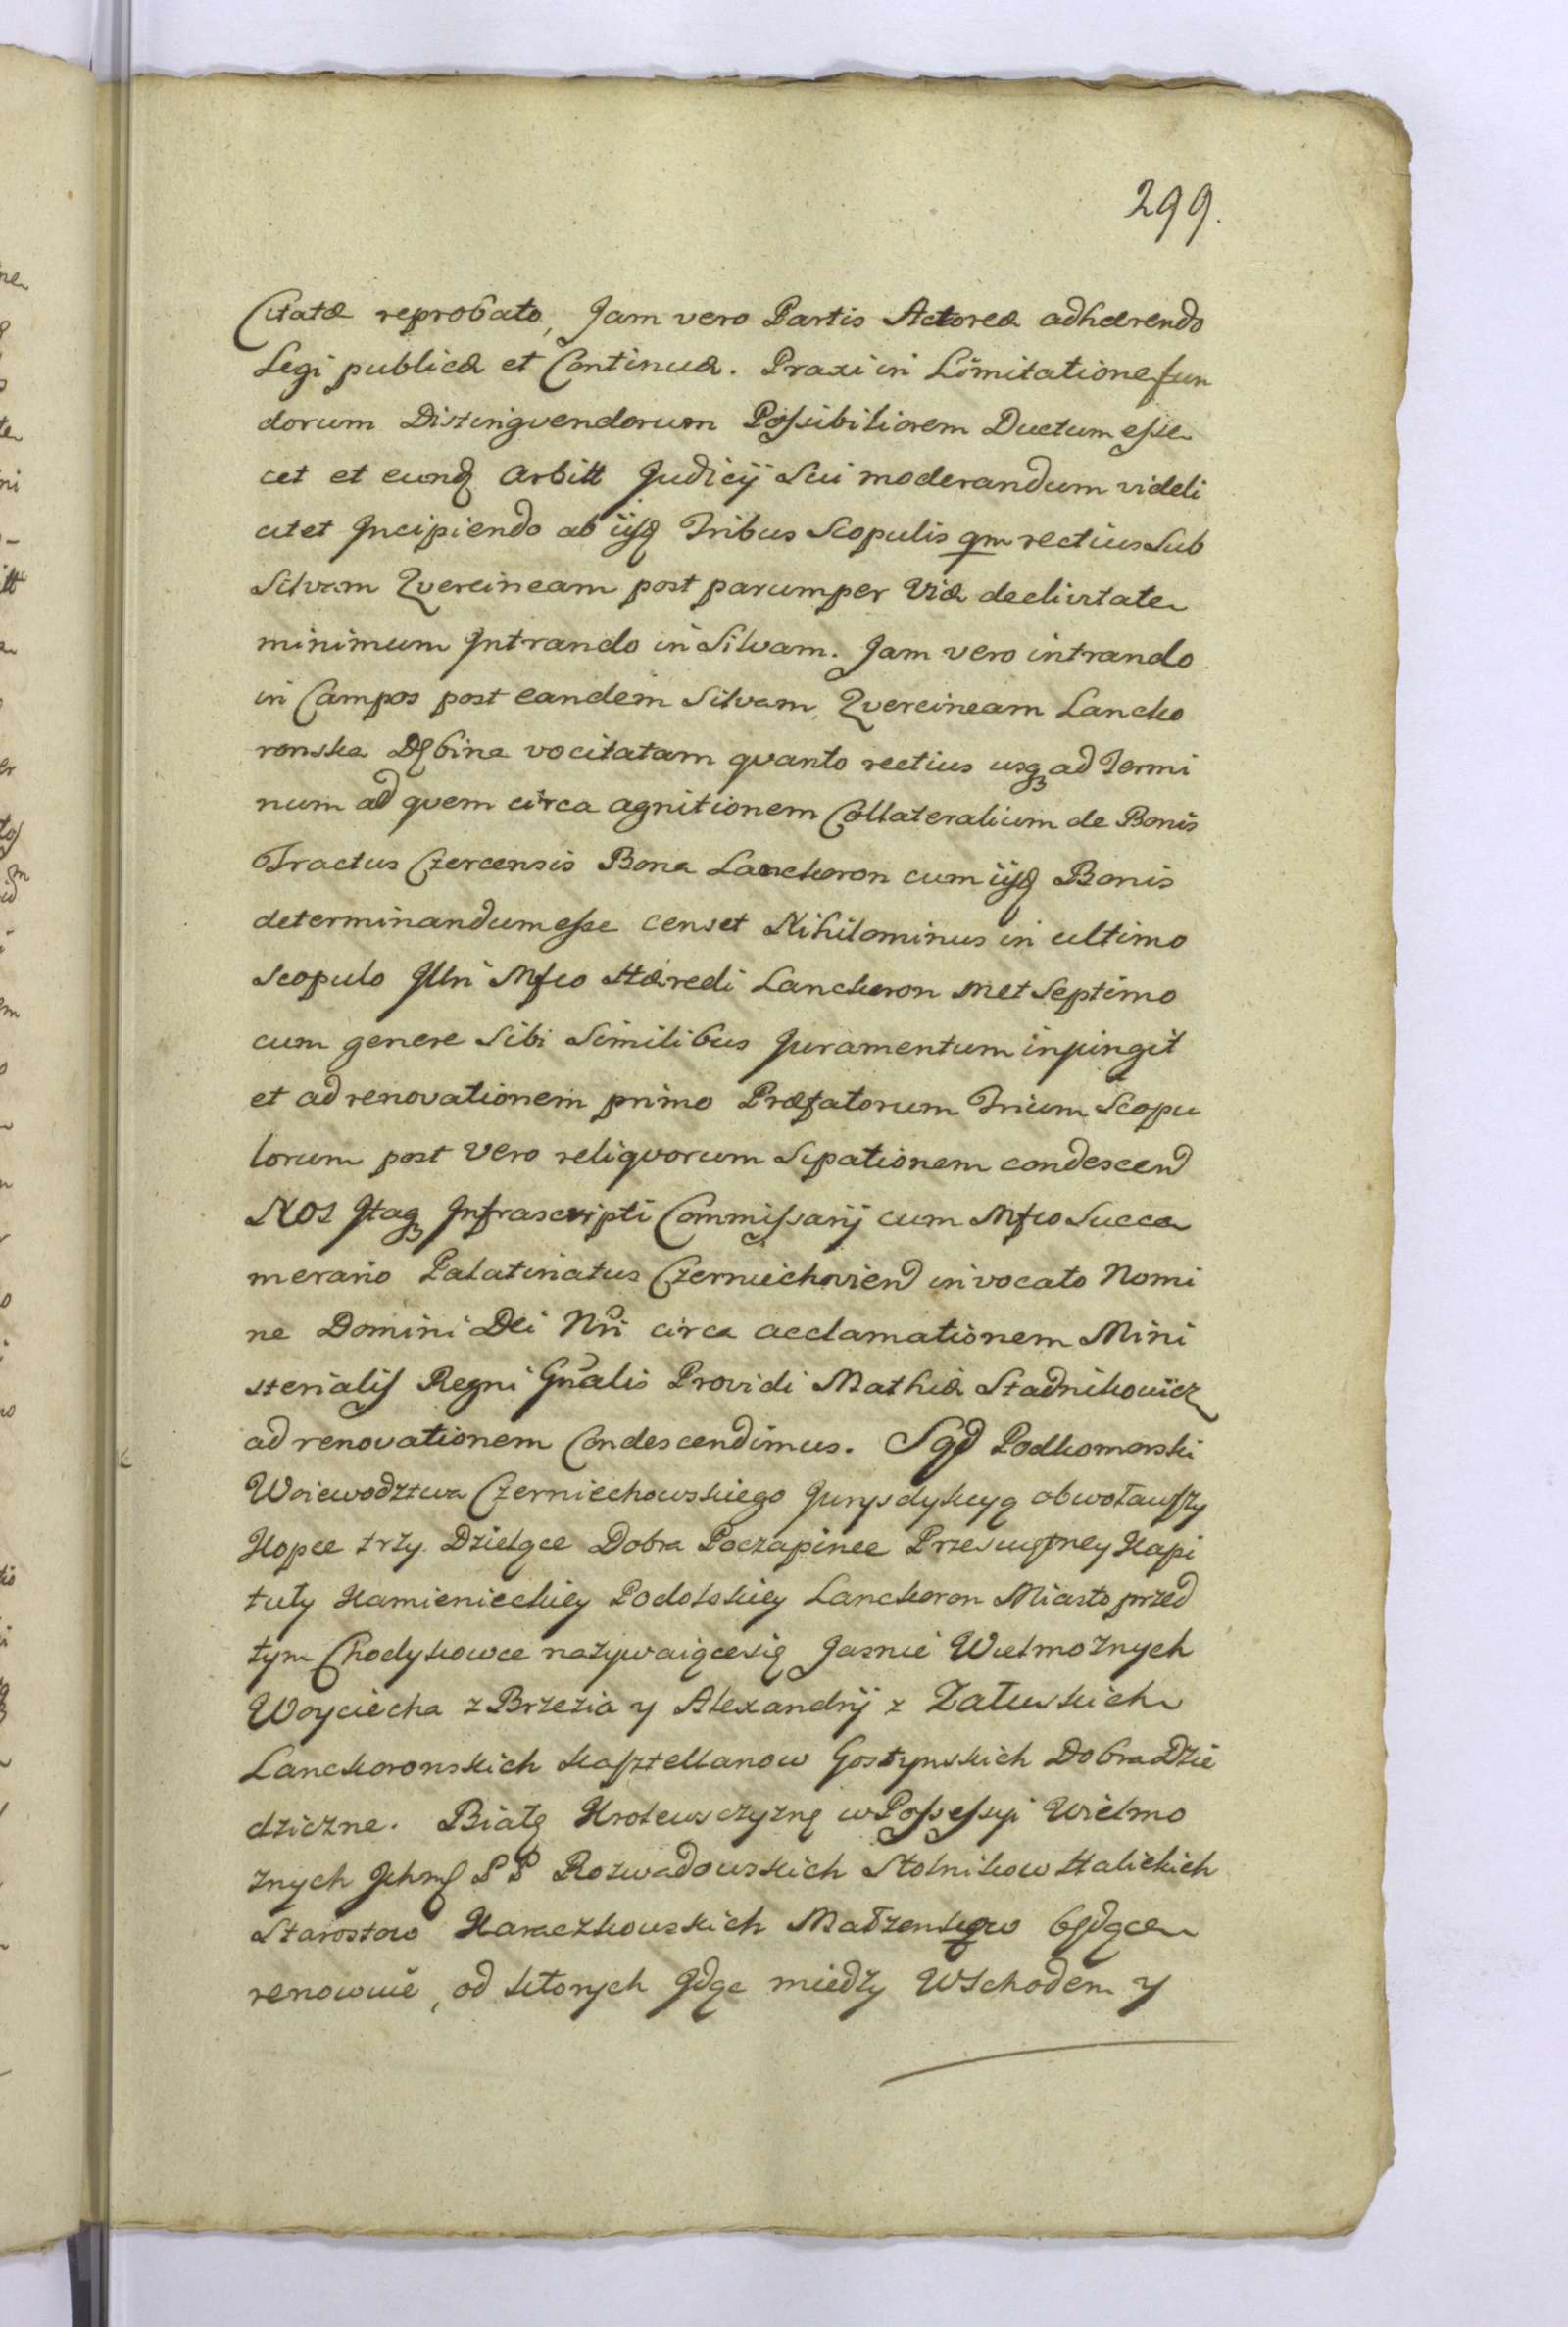 299.
Citatæ reprobato, Jam vero Partis Actoreæ adhærendo
Legi publicæ et Continuæ. Praxi in Limitatione fun
dorum Distingvendorum Possibiliorem Ductum esse
cet et eund Arbitt Judicij Sui moderandum videli
citet Incipiendo ab iisd Tribus Scopulis qm rectius Sub
Silvam Qvercineam post parumper Viæ declivitate
minimum Intrando in Silvam. Jam vero intrando
in Campos post eandem Silvam Qvercineam Lancko
ronska Dębina vocitatam qvanto rectius usq ad Termi
num ad qvem circa agnitionem Collateralium de Bonis
Tractus Czercensis Bona Lanckoron cum iisd Bonis
determinandum esse censet Nihilominus in ultimo
Scopulo Illri Mfco Hæredi Lanckoron met Septimo
cum genere Sibi Similibus Juramentum inpingit
et ad renovationem primo Præfatorum Trium Scopu
lorum post vero reliqvorum Sipationem condescend
Nos Itaq Infrascripti Commissarij cum Mfco Succa
merario Palatinatus Czerniechoviend invocato Nomi
ne Domini Dei Nri circa acclamationem Mini
sterialis Regni Gnalis Providi Mathiæ Stadnikowicz
ad renovationem Condescendimus. Sąd Podkomorski
Woiewodztwa Czerniechowskiego Jurysdykcyą obwoławszy
Kopce trzy Dzielące Dobra Poczapince Przeswiętney Kapi
tuły Kamienieckiey Podolskiey Lanckoron Miasto przed
tym Chodykowce nazywaiącesię Jasnie Wielmożnych
Woyciecha z Brzezia y Alexandrij z Załuskich
Lanckoronskich Kasztellanow Gostynskich Dobra Dzie
dziczne. Białą Krolewsczyznę w Possessyi Wielmo
żnych Ichmę P P Rozwadowskich Stolnikow Halickich
Starostow Karaczkowskich Małżenkow będące
renowuie, od ktorych Idąc między Wschodem y